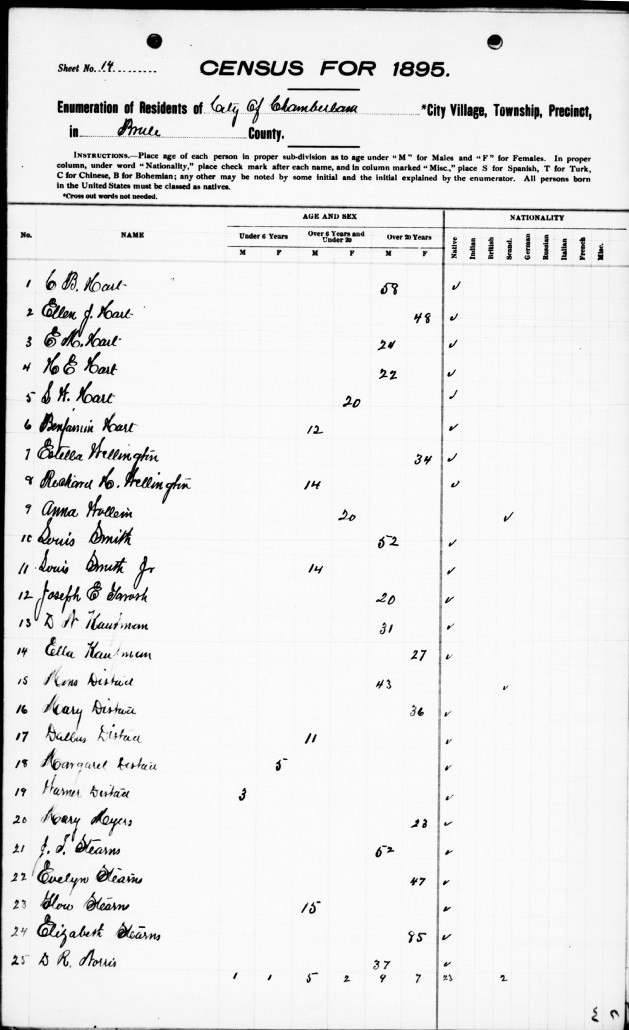 Sheet No. 14
CENSUS FOR 1895.
Enumeration of Residents of City Of Chamberlain *City Village, Township, Precinct,
in Brule County.
INSTRUCTIONS.—Place age of each person in proper sub-division as to age under "M" for Males and "F" for Females. In proper
column, under word "Nationality," place check mark after each name, and in column marked "Misc.," place S for Spanish, T for Turk,
C for Chinese, B for Bohemian; any other may be noted by some initial and the initial explained by the enumerator. All persons born
in the United States must be classed as natives.
*Cross out words not needed.
AGE AND SEX NATIONALITY
No. NAME Under 6 Years Over 6 Years and Under 20 Over 20 Years Native Indian British Scand. German Russian Italian French Misc.
M F M F M F
1 C B. Hart 58 ✓
2 Ellen J. Hart 48 ✓
3 E M. Hart 24 ✓
4 H E Hart 22 ✓
5 S H. Hart 20 ✓
6 Benjamin Hart 12 ✓
7 Estella Wellington 34 ✓
8 Richard H. Wellington 14 ✓
9 Anna 20 ✓
10 Louis Smith 52 ✓
11 Louis Smith Jr 14 ✓
12 Joseph E 20 ✓
13 D N Kaufman 31 ✓
14 Ella Kaufman 27 ✓
15 Mons Distad 43 ✓
16 Mary Distad 36 ✓
17 Dallas Distad 11 ✓
18 Margaret Distad 5 ✓
19 Warner Distad 3 ✓
20 Mary Meyers 23 ✓
21 J. T. Stearns 52 ✓
22 Evelyn Stearns 47 ✓
23 Stearns 15 ✓
24 Elizabeth Stearns 85 ✓
25 D R. Norris 37 ✓
1 1 5 2 9 7 23 2